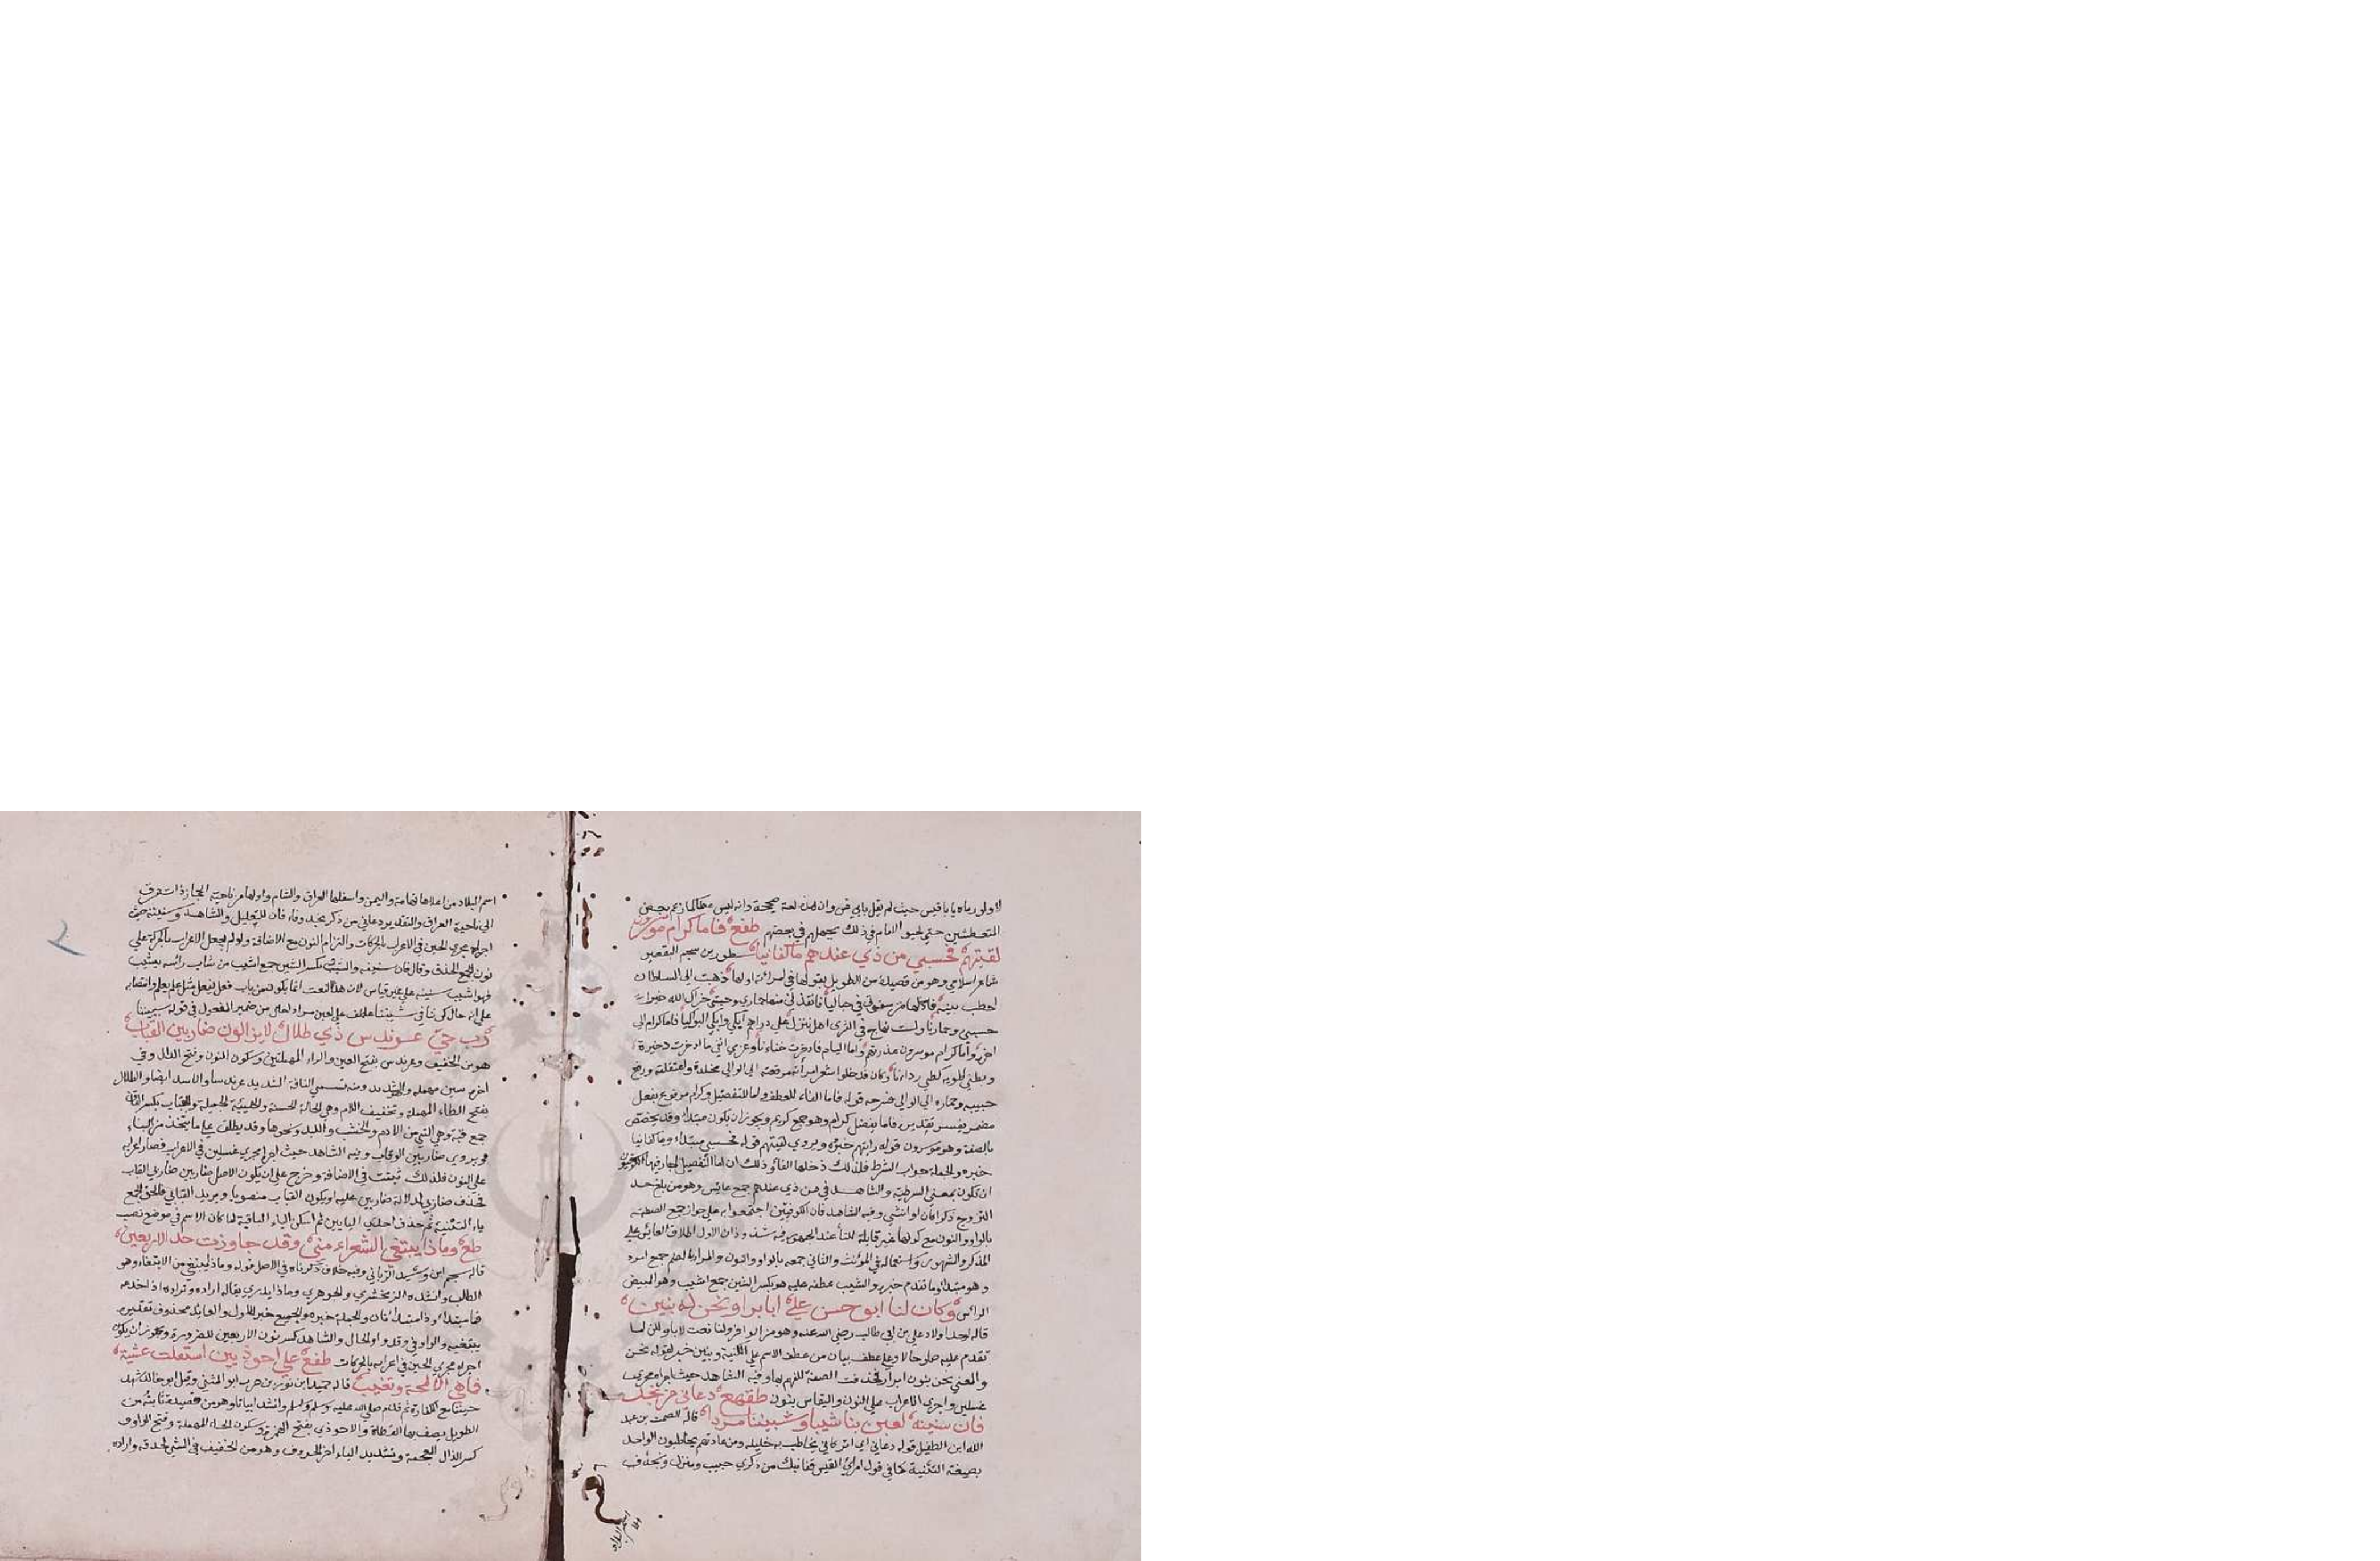 الاولى رماه يا باقيس حيث لم يقل بابي قيس وان هذه لغة صحيحة وانه ليس مخطأ كما زعم بعض
المتعصبين حتى لحنوا الامام في ذلك بجهلهم في بعضهم طقع فاما كرام موسرون
لقيتهم فحسبي من ذي عندهم ما كفانيا منظور بن سحيم الفقعسي
شاعر اسلامي وهو من قصيدة من الطويل يقولها في امرأته اولها ذهبت الى السلطان
حسبي وحمارنا ولست بهاج في القرى اهل منزل على زادهم ابكي وابكي البواكيا فاما كرام الى
اخره واما كرام موسرون عذرتهم واما اللئام فادخرت حيائيا وعرضي ابقى ما ادخرت ذخيرة
وبطني اطويه كطي ردائيا وكان قد حلق شعر امرأته فرفعته الى الوالي فجلده واعتقله ودفع
جبته وحماره الى الوالي فسرحه قوله فاما الفاء للعطف واما للتفصيل وكرام مرفوع بفعل
مضمر يفسره تقديره فاما يفضل كرام وهو جمع كريم ويجوز ان يكون مبتدأ وقد تخصص
بالصفة وهو موسرون قوله رايتهم خبره ويروي لقيتهم قوله فحسبي مبتدأ وما كفانيا
خبره والجملة جواب الشرط فلذلك دخلها الفاء وذلك ان اما التفصيل
ان تكون بمعنى الشرطية والشاهد في من ذي عندهم جمع عانس وهو من بلغ حد
التزوج ذكرا كان او انثى وفيه الشاهد فان الكوفيين اجتمعوا به على جواز جمع الصفة
بالواو والنون مع كونها غير قابلة للتاء عند الجمهور فيه شذوذان الاول اطلاق العانس على
المذكر والمشهور استعماله في المؤنث والثاني جمعه بالواو والنون والمراد بالمرد جمع امرد
وهو مبتدأ وما تقدم خبره والشيب عطف عليه هو بكسر الشين جمع اشيب وهو المبيض
الراس وكان لنا ابو حسن علي ابا برا ونحن له بنين
قاله احد اولاد علي بن ابي طالب رضي الله عنه وهو من الوافر ولنا نصب لابا ولكن لما
تقدم عليه صار حالا وعلي عطف بيان من عطف الاسم على الكنية وبنين خبر لقوله نحن
والمعنى نحن بنون ابرار فحذفت الصفة للفهم بها وفيه الشاهد حيث اجراه مجرى
غسلين واجرى الاعراب على النون والقياس بنون طقهع دعاني من نجد
فان سنينه لعبن بنا شيبا وشيبننا مردا قاله الصمت بن عبد
الله ابن الطفيل قوله دعاني اي اتركاني يخاطب به خليله ومن عادتهم يخاطبون الواحد
بصيغة التثنية كما في قول امرئ القيس قفا نبك من ذكري حبيب ومنزل ونجد في
اسم البلاد
اسم البلاد من اعلاها تهامة واليمن واسفلها العراق والشام واولها من ناحية الحجاز ذات عرق
الى ناحية العراق والتقدير دعاني من ذكر نجد وفاء فان للتعليل والشاهد وسنينه حيث
اجراه مجري الحين في الاعراب بالحركات والتزام النون مع الاضافة ولو لم يجعل الاعراب بالحركة على
نون الجمع لحذف وقال فان سنيه والشيب بكسر الشين جمع اشيب من شاب رأسه يشيب
فهو اشيب سنينه على غير قياس لان هذا النعت انما يكون من باب فعل يفعل مثل علم يعلم وانتصابه
على انه حال من نا في شيبننا عطف على لعبن مردا حال من ضمير المفعول في قوله شيبننا
رب حي عرندس ذي طلال لا يزالون ضاربين القباب
هو من الخفيف وعرندس بفتح العين والراء المهملتين وسكون النون وفتح الدال وفي
اخره سين مهملة والشديد ومنه تسمى الناقة الشديدة عرندسا والاسد ايضا والطلال
بفتح الطاء المهملة وتخفيف اللام وهي الحالة الحسنة والهيئة الجميلة والقباب بكسر القاف
جمع قبة وهي التي من الادم والخشب واللبد ونحوها وقد يطلق على ما يتخذ من البناء
ويروي ضاربين الرقاب وفيه الشاهد حيث اجرا مجري غسلين في الاعراب فصار اعرابه
على النون فلذلك ثبتت في الاضافة وخرج على ان يكون الاصل ضاربين ضاربي القباب
فحذف ضاربي لدلالة ضاربين عليه او يكون القباب منصوبا ويريد القبابي فالحق الجمع
ياء التثنية ثم حذف احدي اليايين ثم اسكن الياء الباقية لما كان الاسم في موضع نصب
طع وماذا يبتغي الشعراء مني وقد جاوزت حد الاربعين
قاله سحيم ابن وثيل الرياني وفيه خلاف ذكرناه في الاصل قوله وماذا يبتغي من الابتغاء وهو
الطلب وانشده الزمخشري والجوهري وماذا يدري يقال ادراه وتدراه اذا خدعه
فما مبتدا وذا مبتدا ثان والجملة خبره والجميع خبر للاول والعائد محذوف تقديره
يبتغيه والواو في وقد واو الحال والشاهد كسر نون الاربعين للضرورة ويجوز ان يكون
اجراه مجري الحين في اعرابه بالحركات طفع على احوذيين استقلت عشية
فما هي الا لمحة وتغيب قاله حميد ابن ثور بن حرب ابو المثنى وقيل ابو خالد شهد
حنينا مع الكفار ثم قدم صلى الله عليه وسلم واسلم وانشد ابياتا وهو من قصيدة بائية من
الطويل يصف بها القطاة والاحوذي بفتح الهمزة وسكون الحاء المهملة وفتح الواو و
كسر الذال المعجمة وتشديد الياء اخر الحروف وهو من الخفيف في الشي لحذقه واراد